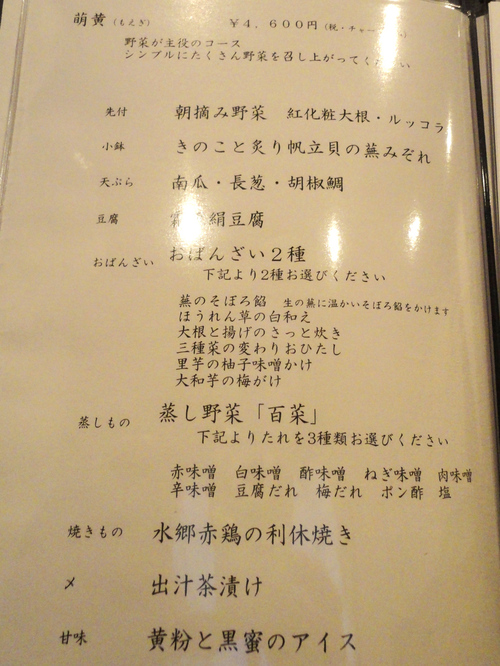 萌黄(もえぎ) ¥4,600円(税・チャー
野菜が主役のコース
シンプルにたくさん野菜を召し上がってください
先付 朝摘み野菜 紅化粧大根・ルッコラ
小鉢 きのこと炙り帆立貝の蕪みぞれ
天ぷら 南瓜・長葱・胡椒鯛
豆腐 絹豆腐
おばんざい おばんざい2種
下記より2種お選びください
蕪のそぼろ餡 生の蕪に温かいそぼろ餡をかけます
ほうれん草の白和え
大根と揚げのさっと炊き
三種菜の変わりおひたし
里芋の柚子味噌かけ
大和芋の梅がけ
蒸しもの 蒸し野菜「百菜」
下記よりたれを3種類お選びください
赤味噌 白味噌 酢味噌 ねぎ味噌 肉味噌
辛味噌 豆腐だれ 梅だれ ポン酢 塩
焼きもの 水郷赤鶏の利休焼き
〆 出汁茶漬け
甘味 黄粉と黒蜜のアイス